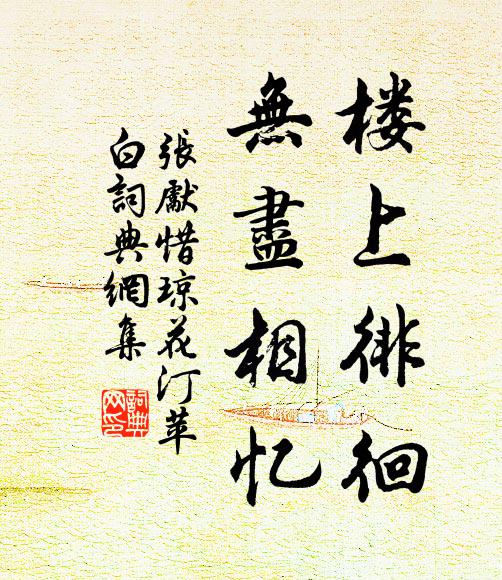 楼上徘徊
無盡相忆
張獻惜琼花汀苹
白詞典網集
詞典
网印